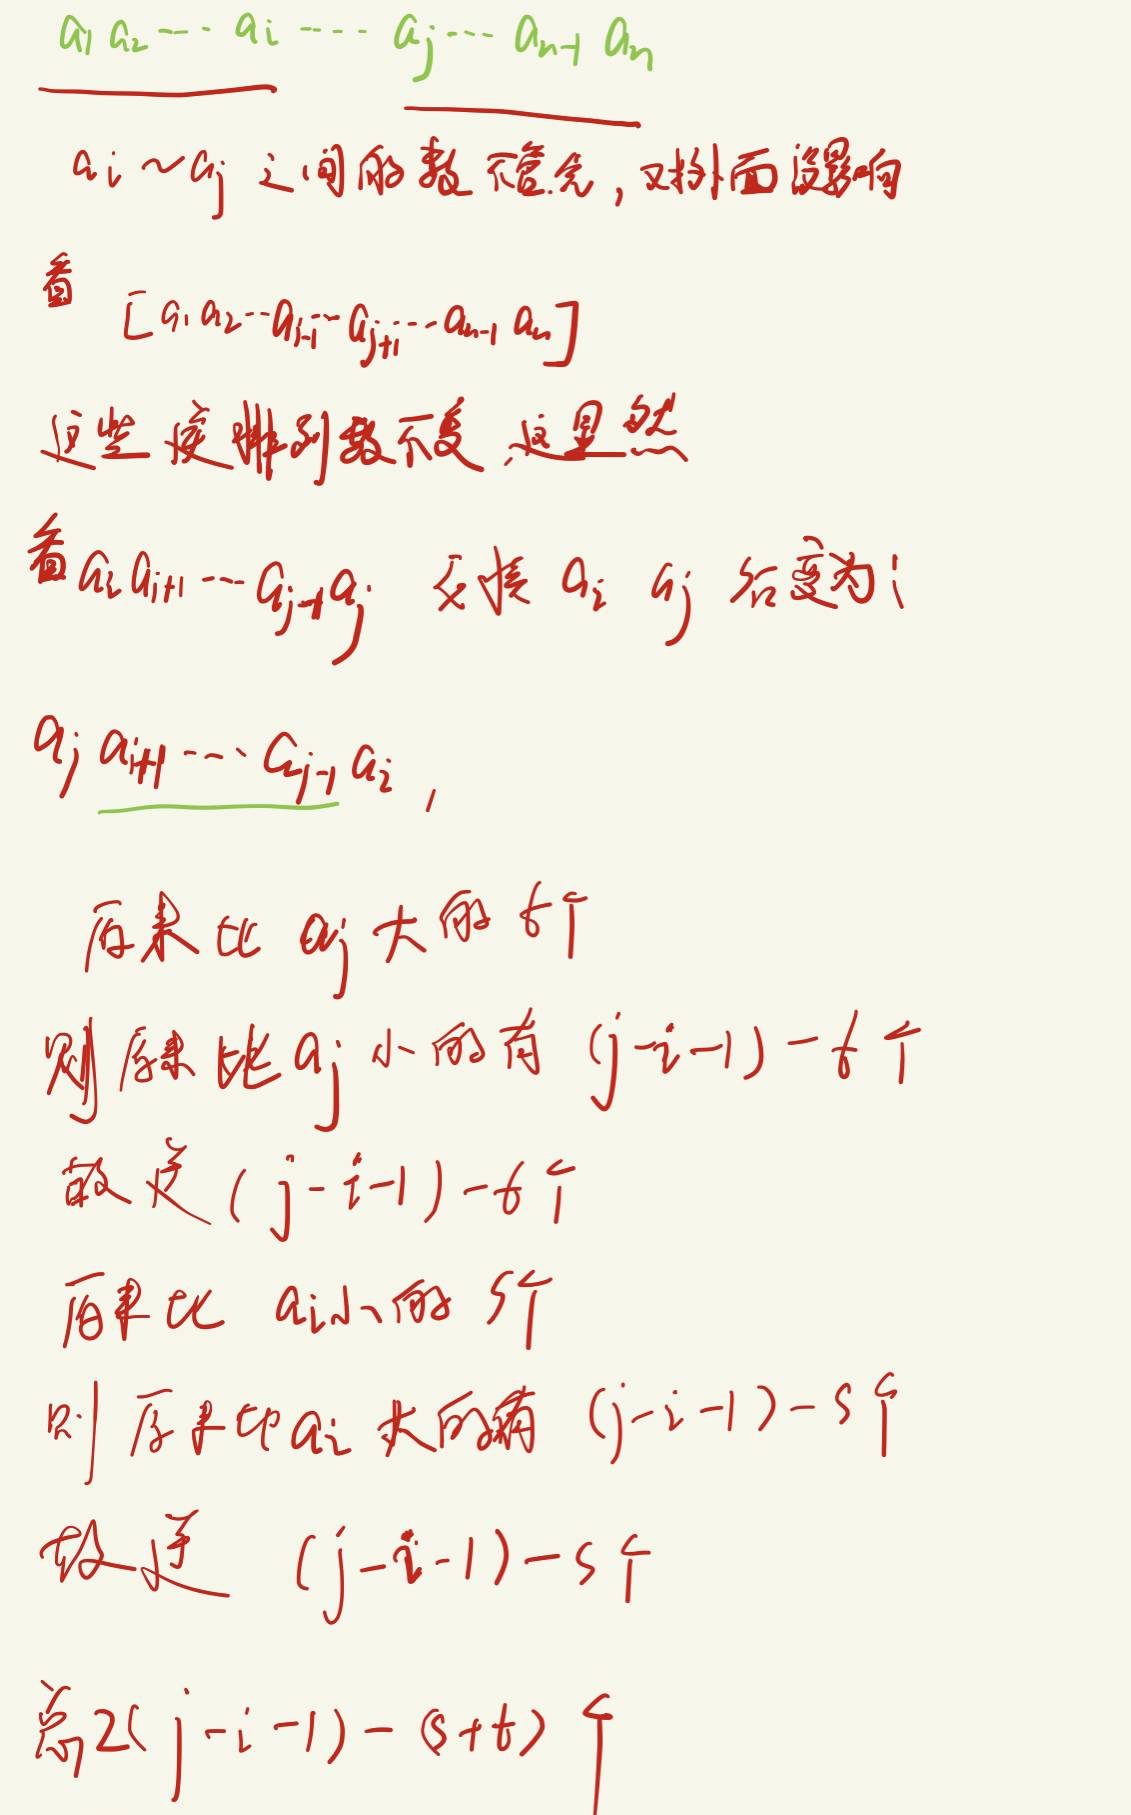 a₁ a₂ ---- aᵢ ---- aⱼ ---- aₙ₋₁ aₙ
aᵢ ~ aⱼ 之间的数不管它,对外面没影响
看
[a₁ a₂ --- aᵢ₋₁ -- aⱼ₊₁ --- aₙ₋₁ aₙ]
这些逆排列数不变,这显然
看 aᵢ aᵢ₊₁ --- aⱼ₋₁ aⱼ 交换 aᵢ aⱼ 后变为:
aⱼ aᵢ₊₁ ---- aⱼ₋₁ aᵢ ,
后来比 aⱼ 大的 t个
则后来比 aⱼ 小的有 (j-i-1)-t个
故逆 (j-i-1)-t个
后来比 aᵢ 小的 s个
则后来比 aᵢ 大的有 (j-i-1)-s个
故逆 (j-i-1)-s个
总 2(j-i-1)-(s+t)个